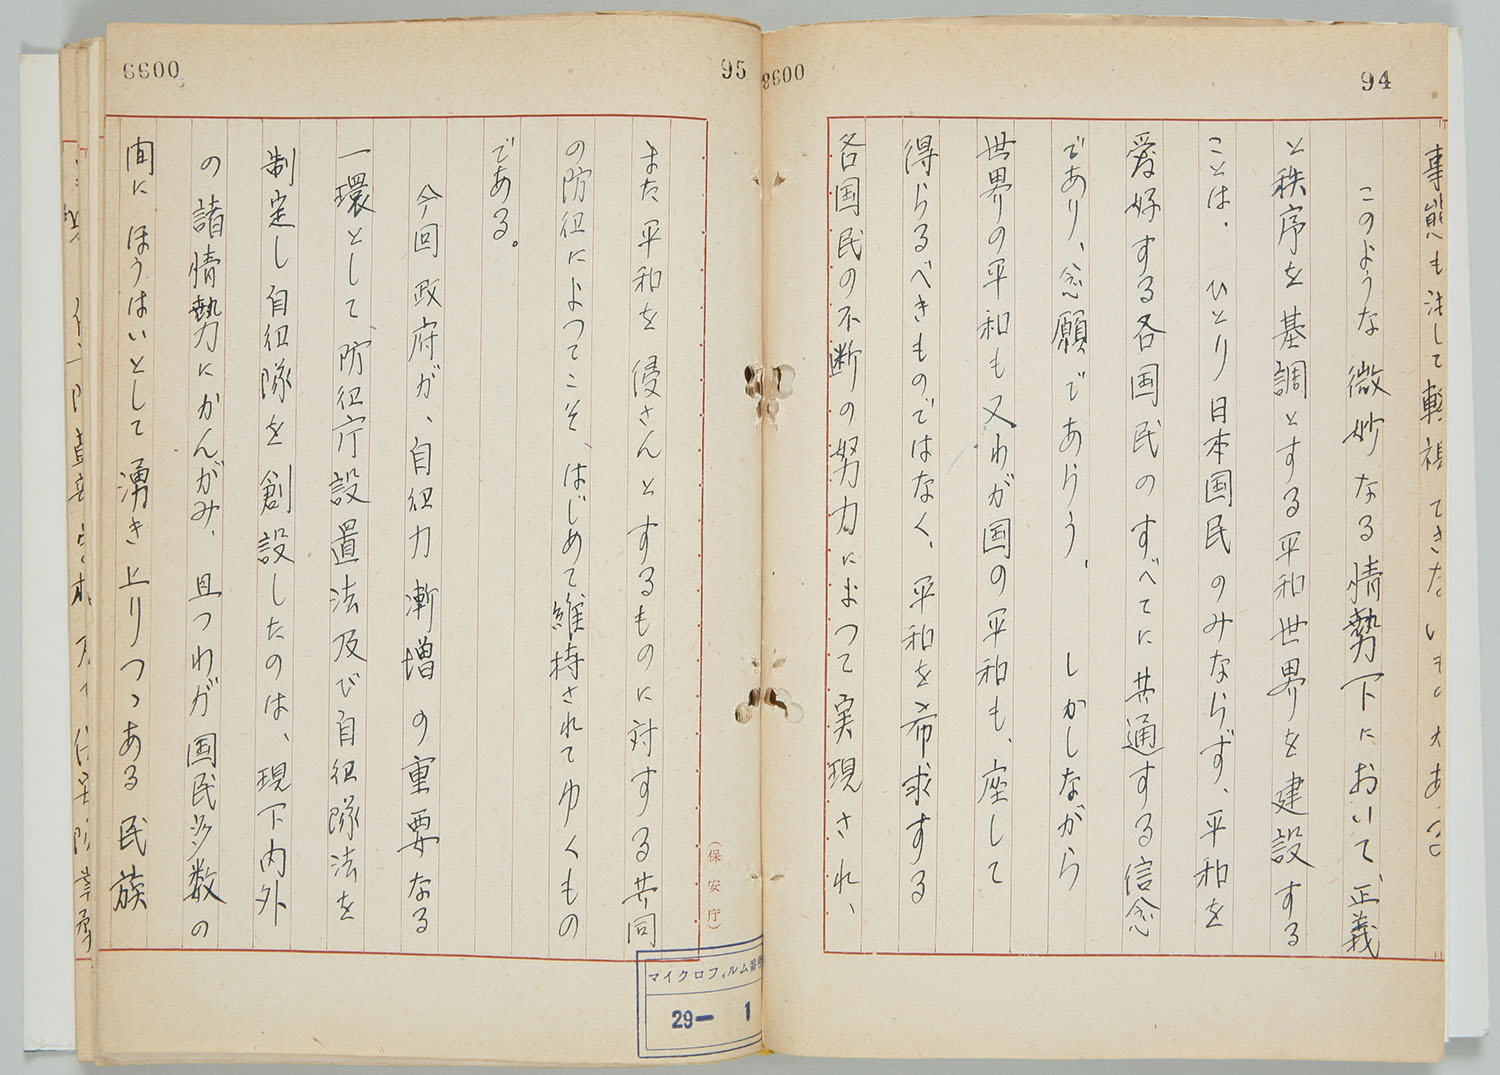 94
8600
事態も決して軽視できない
このような微妙なる情勢下において、正義
と秩序を基調とする平和世界を建設する
ことは、ひとり日本国民のみならず、平和を
愛好する各国民のすべてに共通する信念
であり、念願であらう、しかしながら
世界の平和も又わが国の平和も、座して
得らるべきものではなく、平和を希求する
各国民の不断の努力によつて実現され、
95
6600
また平和を侵さんとするものに対する共同
の防衛によつてこそ、はじめて維持されてゆくもの
である。
今回政府が、自衛力漸増の重要なる
一環として、防衛庁設置法及び自衛隊法を
制定し自衛隊を創設したのは、現下内外
の諸情勢にかんがみ、且つわが国民多数の
間にほうはいとして湧き上りつつある民族
(保安庁)
マイクロフィルム番号
29— 1